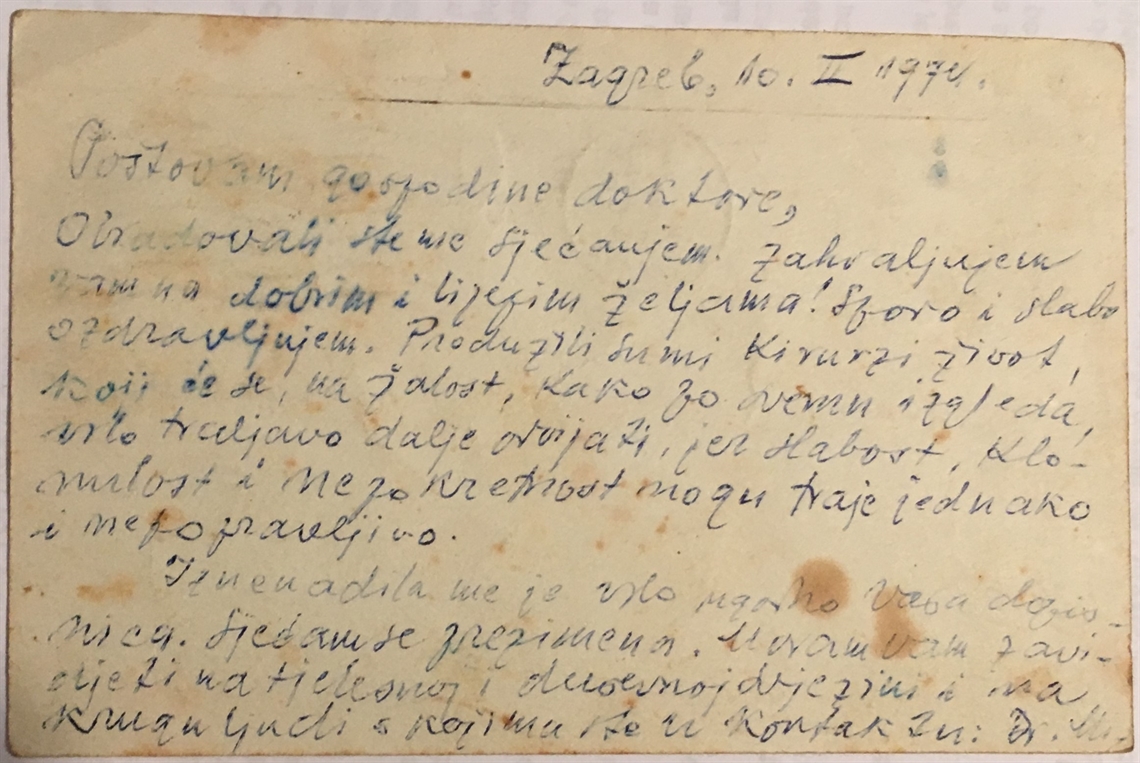 Zagreb, 10. II 1974.
Poštovani gospodine doktore,
Obradovali ste me sjećanjem. Zahvaljujem
vam na dobrim i lijepim željama! Sporo i slabo
ozdravljujem. Produžili su mi kirurzi život,
koji će se, na žalost, kako po svemu izgleda,
vrlo traljavo dalje odvijati, jer slabost, klo-
nulost i nepokretnost nogu traje jednako
i nepopravljivo.
Iznenadila me je vrlo ugodno Vaša dopis-
nica. Sjećam se prezimena. Moram vam zavi-
djeti na tjelesnoj i duševnoj i na
krugu ljudi s kojima ste u kontaktu: Dr. M.